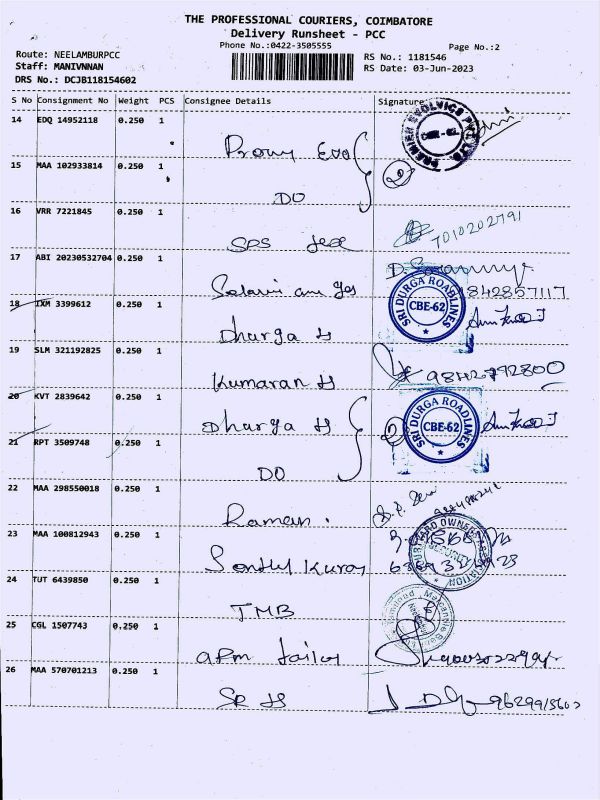 THE PROFESSIONAL COURIERS, COIMBATORE
Delivery Runsheet - PCC
Phone No.:0422-3505555
Page No.:2
Route: NEELAMBURPCC
Staff: MANIVNNAN
DRS No.: DCJB118154602
RS No.: 1181546
RS Date: 03-Jun-2023
S No Consignment No Weight PCS Consignee Details Signature
14 EDQ 14952118 0.250 1
15 MAA 102933814 0.250 1
DO
16 VRR 7221845 0.250 1
SPS
7010202791
17 ABI 20230532704 0.250 1
9842857117
18 IXM 3399612 0.250 1
Dharga
SRI DURGA ROADLINES
CBE-62
19 SLM 321192825 0.250 1
Kumaran
9842792800
20 KVT 2839642 0.250 1
Dharga
SRI DURGA ROADLINES
CBE-62
21 RPT 3509748 0.250 1
DO
22 MAA 298550018 0.250 1
Raman
23 MAA 100812943 0.250 1
24 TUT 6439850 0.250 1
TMB
25 CGL 1507743 0.250 1
26 MAA 570701213 0.250 1
SR